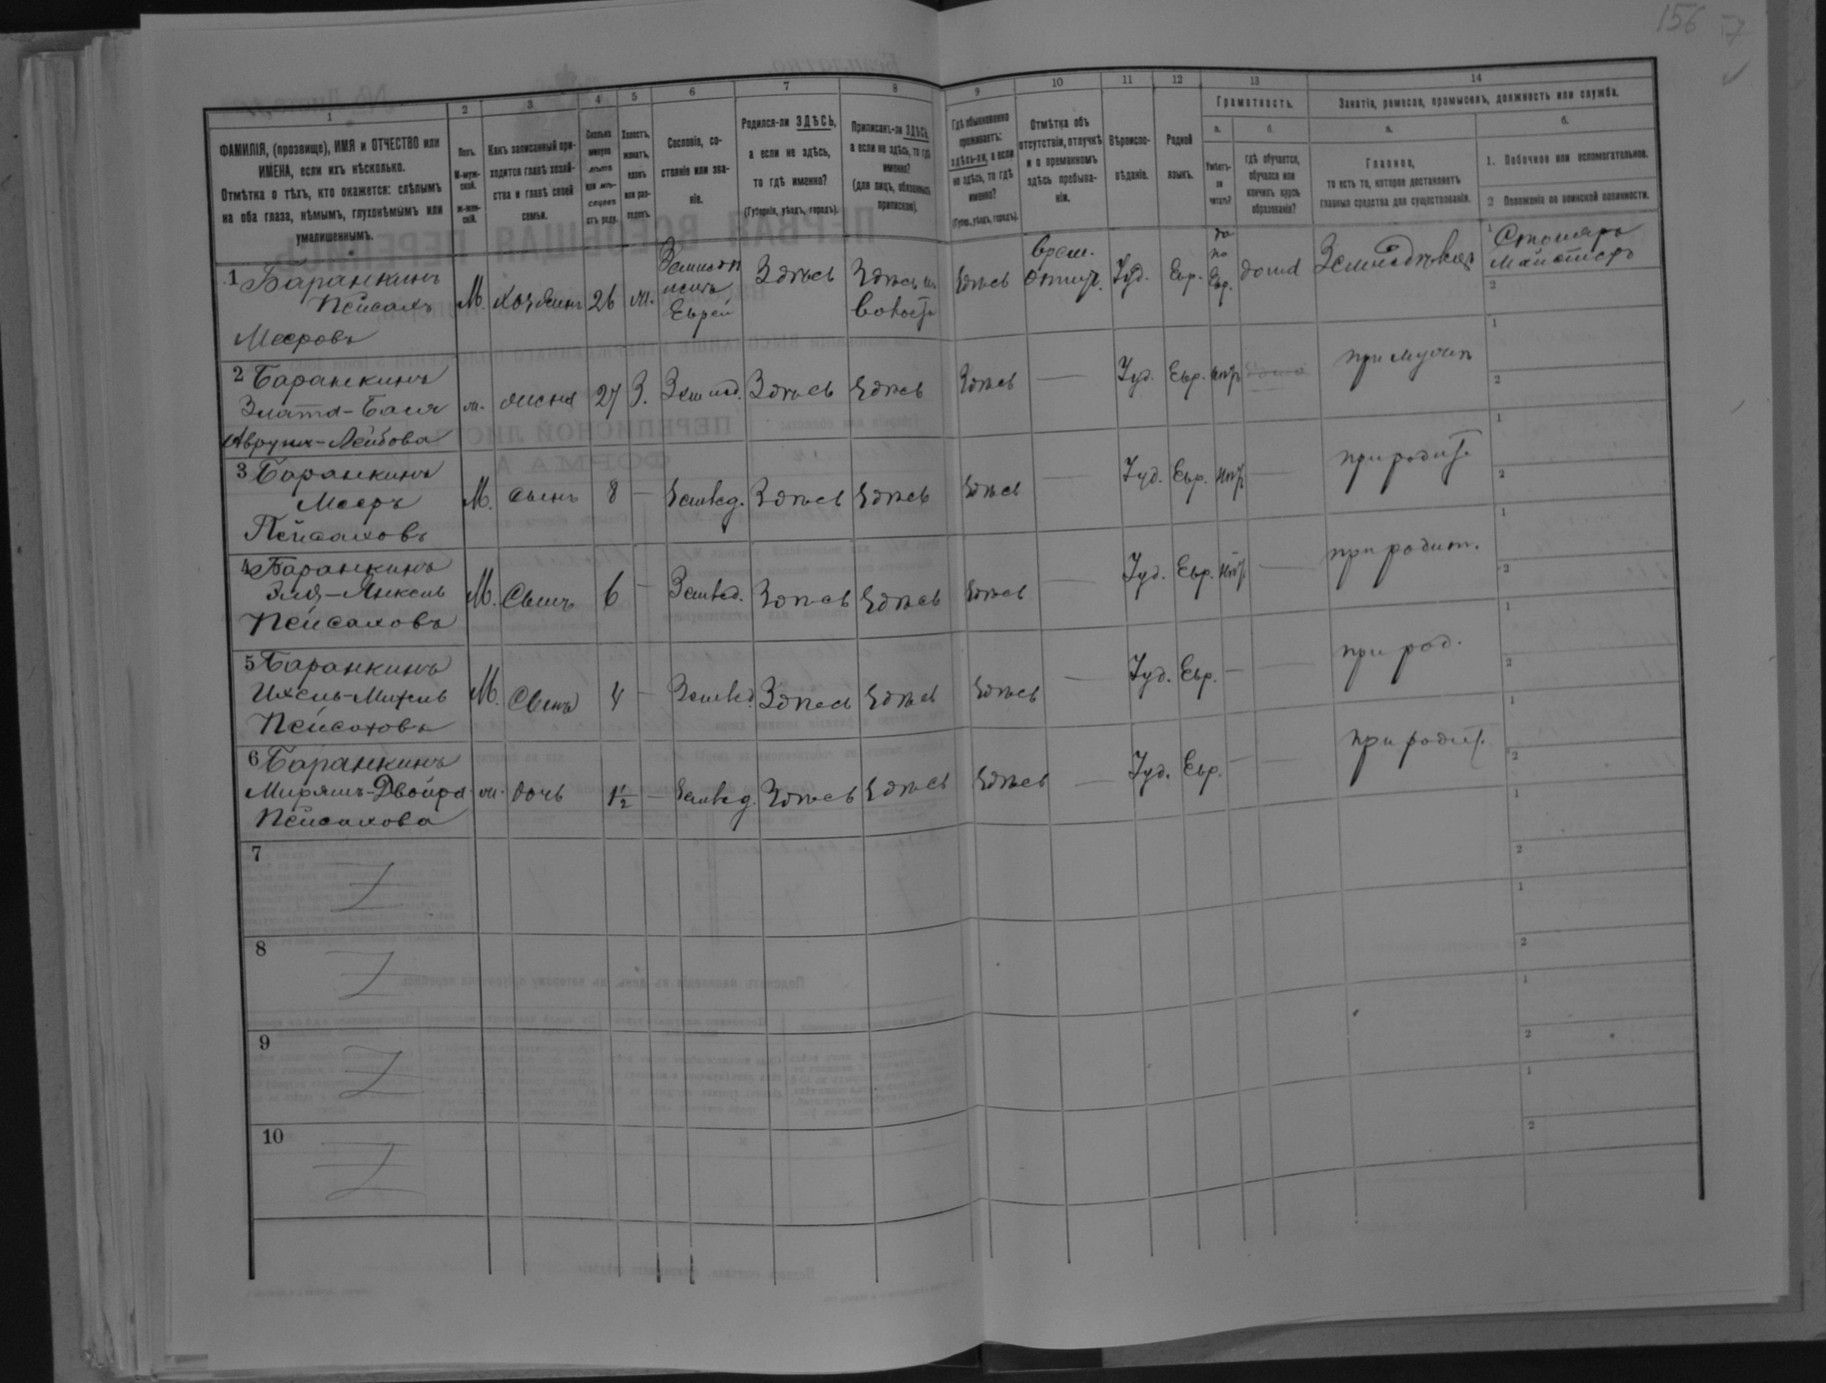 156
1 2 3 4 5 6 7 8 9 10 11 12 13 14
ФАМИЛІЯ, (прозвище), ИМЯ и ОТЧЕСТВО или
ИМЕНА, если ихъ нѣсколько.
Отмѣтка о тѣхъ, кто окажется: слѣпымъ
на оба глаза, нѣмымъ, глухонѣмымъ или
умалишеннымъ.
Полъ.
М-муж-
ской.
ж-жен-
скій.
Какъ записанный при-
ходится главѣ хозяй-
ства и главѣ своей
семьи.
Сколько
минуло
лѣтъ
или мѣ-
сяцевъ
отъ роду.
Холостъ,
женатъ,
вдовъ
или раз-
веденъ.
Сословіе, со-
стояніе или зва-
ніе.
Родился-ли ЗДѢСЬ,
а если не здѣсь,
то гдѣ именно?
(Губернія, уѣздъ, городъ).
Приписанъ-ли ЗДѢСЬ,
а если не здѣсь, то гдѣ
именно?
(Для лицъ, обязанныхъ
припискою).
Гдѣ обыкновенно
проживаетъ:
здѣсь-ли, а если
не здѣсь, то гдѣ
именно?
(Губер., уѣздъ, городъ).
Отмѣтка объ
отсутствіи, отлучкѣ
и о временномъ
здѣсь пребыва-
ніи.
Вѣроиспо-
вѣданіе.
Родной
языкъ.
Грамотность.
а.
Умѣетъ-
ли
читать?
б.
гдѣ обучается,
обучался или
кончилъ курсъ
образованія?
Занятіе, ремесло, промыселъ, должность или служба.
а.
Главное,
то есть то, которое доставляетъ
главныя средства для существованія.
б.
1. Побочное или вспомогательное.
2 Положеніе по воинской повинности.
1 Баранкинъ
Пейсахъ
Мееровъ
М. хозяинъ 26 ж.
Еврей
Здѣсь Здѣсь
Здѣсь
Врем.
Іуд. Евр. да
по
Евр. дома Земледѣлецъ 1 Столяръ
2
2 Баранкинъ
Злата-Бася
-Лейбова
ж. жена 27 З. Здѣсь Здѣсь Здѣсь — Іуд. Евр. при мужѣ 1
2
3 Баранкинъ
Мееръ
Пейсаховъ
М. Сынъ 8 — Здѣсь Здѣсь Здѣсь — Іуд. Евр. — при родит. 1
2
4 Баранкинъ
Эля-Янкель
Пейсаховъ
М. Сынъ 6 — Здѣсь Здѣсь Здѣсь — Іуд. Евр. — при родит. 1
2
5 Баранкинъ
Ихель-Михель
Пейсаховъ
М. Сынъ 4 — Здѣсь Здѣсь Здѣсь — Іуд. Евр. — — при род. 1
2
6 Баранкинъ
Миряшъ-Двойра
Пейсахова
ж. дочь 1½ — Здѣсь Здѣсь Здѣсь — Іуд. Евр. — — при родит. 1
2
7 1
2
8 1
2
9 1
2
10 1
2